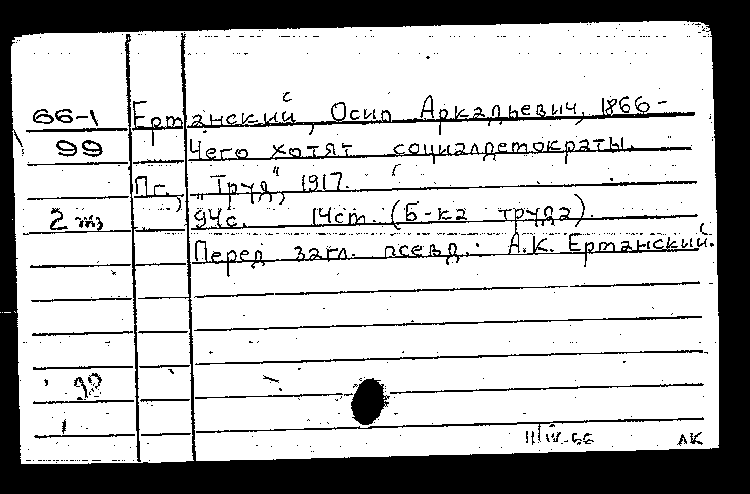 66-1 Ерманский, Осип Аркадьевич, 1866-
99 Чего хотят социалдемократы.
Пг. „Труд", 1917.
2 экз 94с. 14см. (Б-ка труда).
Перед загл. псевд.: А.К. Ерманский.
98
11/IV-66 ЛК